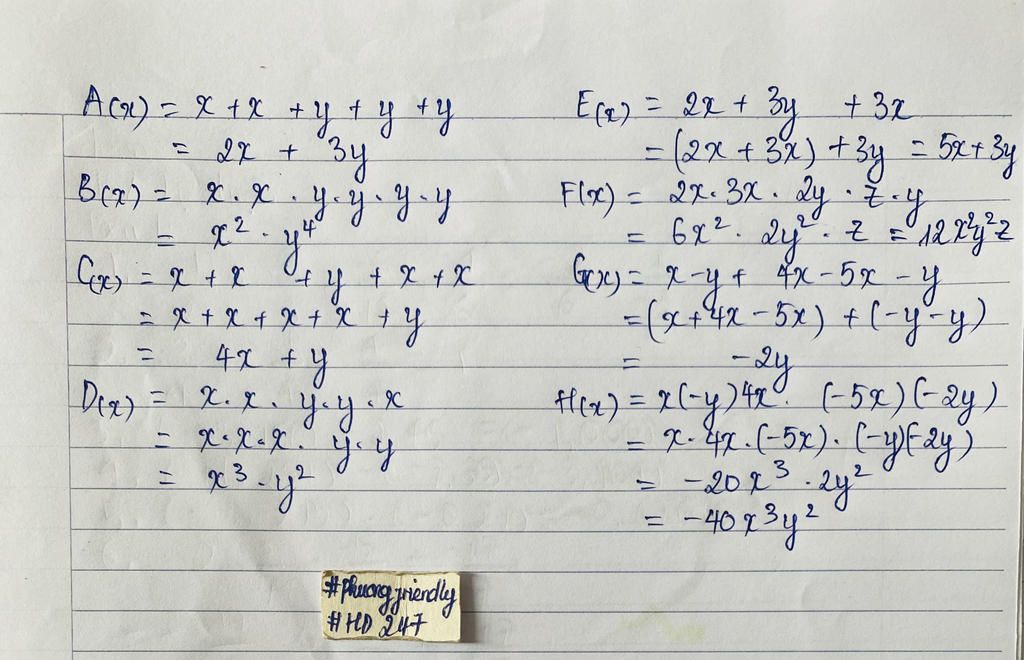 A(x) = x + x + y + y + y
= 2x + 3y
B(x) = x . x . y . y . y . y
= x² . y⁴
C(x) = x + x + y + x + x
= x + x + x + x + y
= 4x + y
D(x) = x . x . y . y . x
= x . x . x . y . y
= x³ . y²
E(x) = 2x + 3y + 3x
= (2x + 3x) + 3y = 5x + 3y
F(x) = 2x . 3x . 2y . z . y
= 6x² . 2y² . z = 12x²y²z
G(x) = x - y + 4x - 5x - y
= (x + 4x - 5x) + (-y - y)
= -2y
H(x) = x(-y)4x . (-5x)(-2y)
= x . 4x . (-5x) . (-y)(-2y)
= -20x³ . 2y²
= -40x³y²
#phuongfriendly
#HD 247